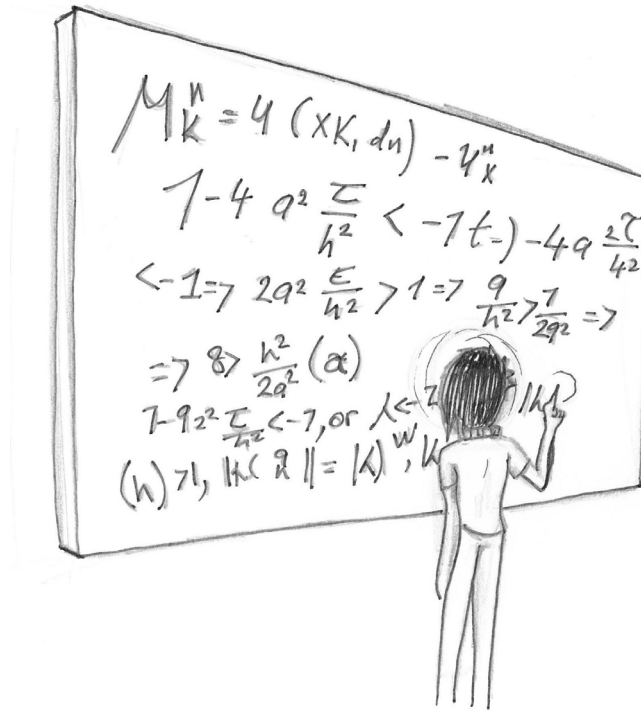 M_K^n = 4 (XK, dn) - 4_X^n
1-4 a² τ/h² < -1 t =) - 4a 2τ/42
<-1 => 2a² τ/h² > 1 => a/h² > 1/2a² =>
=> 8> h²/2a² (a)
1-92² τ/h² < -1, or λ<-
(h) >1, |h( |= |K)^W, K